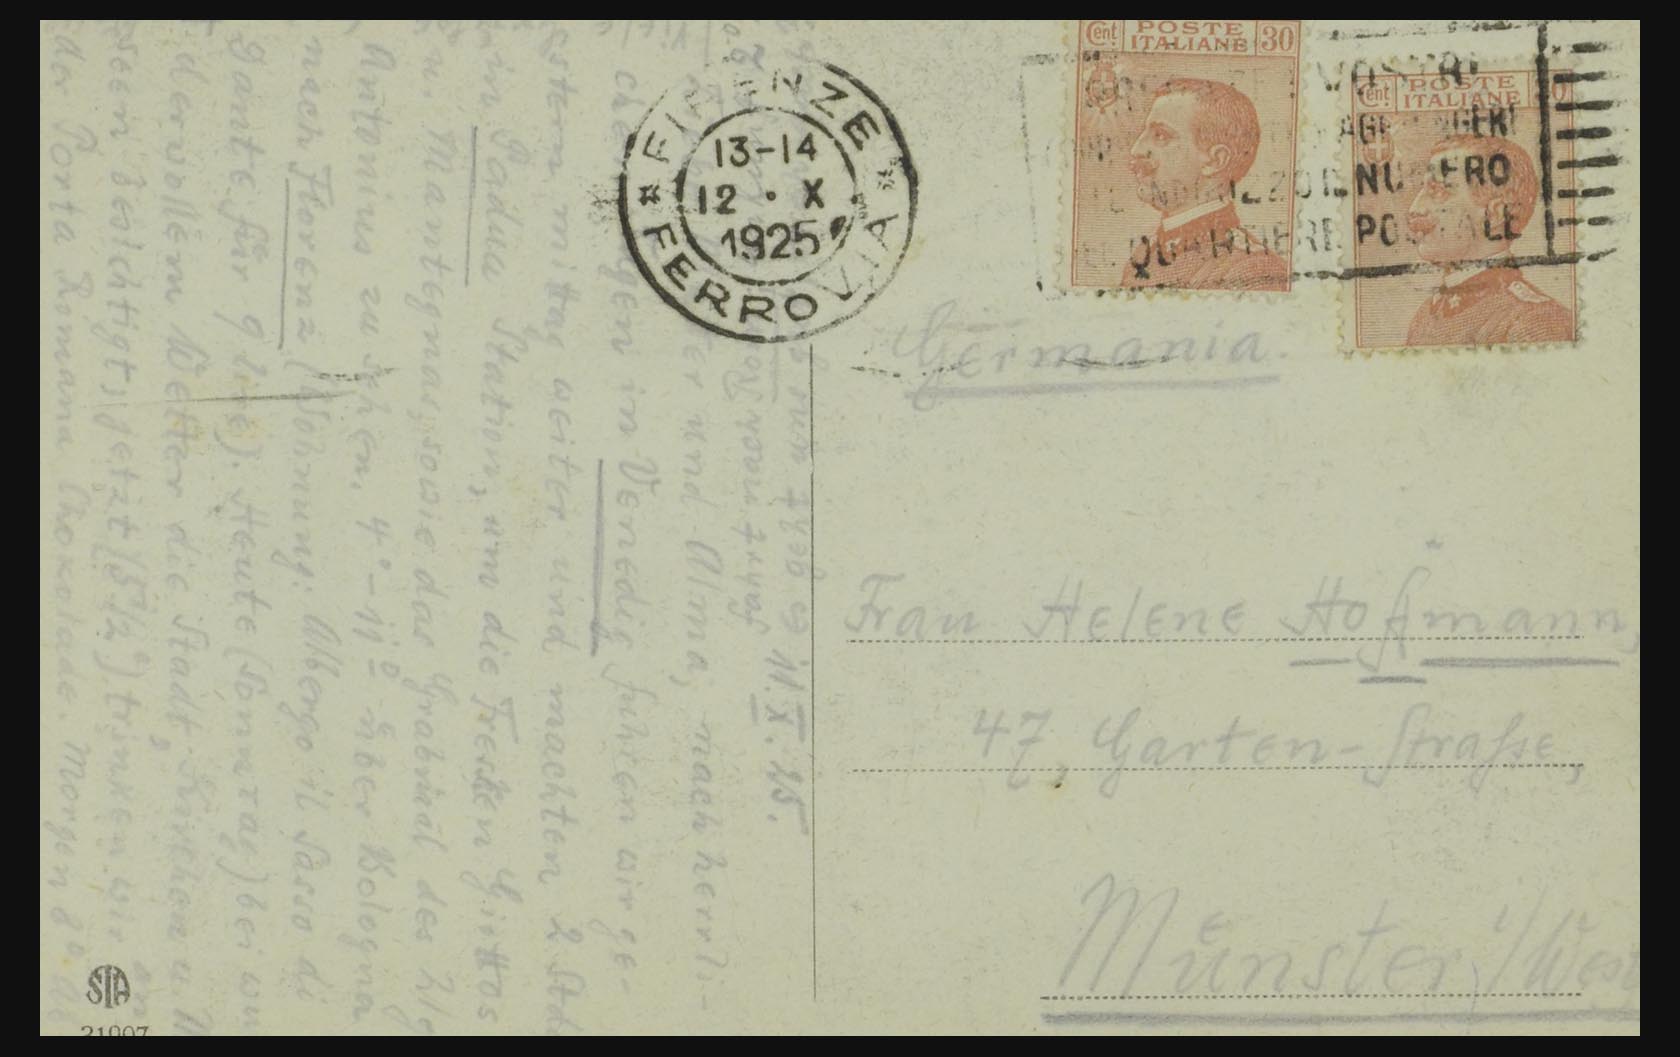 Cent POSTE ITALIANE 30
Cent POSTE ITALIANE 30
FIRENZE
13-14
12 · X
1925
FERROVIA
VOSTRI
AGGIUNGERE
INDIRIZZO IL NUMERO
QUARTIERE POSTALE
Germania.
Frau Helene Hoffmann,
47, Garten-Strasse,
Münster i/West
11.X.25.
und Alma, nach herrli-
chen in Venedig fuhren wir ge-
stern mittag weiter und machten 2 Std
in Padua Station, um die Fresken Giottos
u. Mantegnas, sowie das Grabmal des Hlg
Antonius zu sehen. 4° - 11° über Bologna
nach Florenz (Wohnung: Albergo il Sasso di
Dante für 9 Lire). Heute (Sonntag) bei wun
dervollem Wetter die Stadt, Kirchen u.
besichtigt; jetzt (5 1/2°) trinken wir an
der Porta Romana Chokolade. Morgen 8°
STA
21907